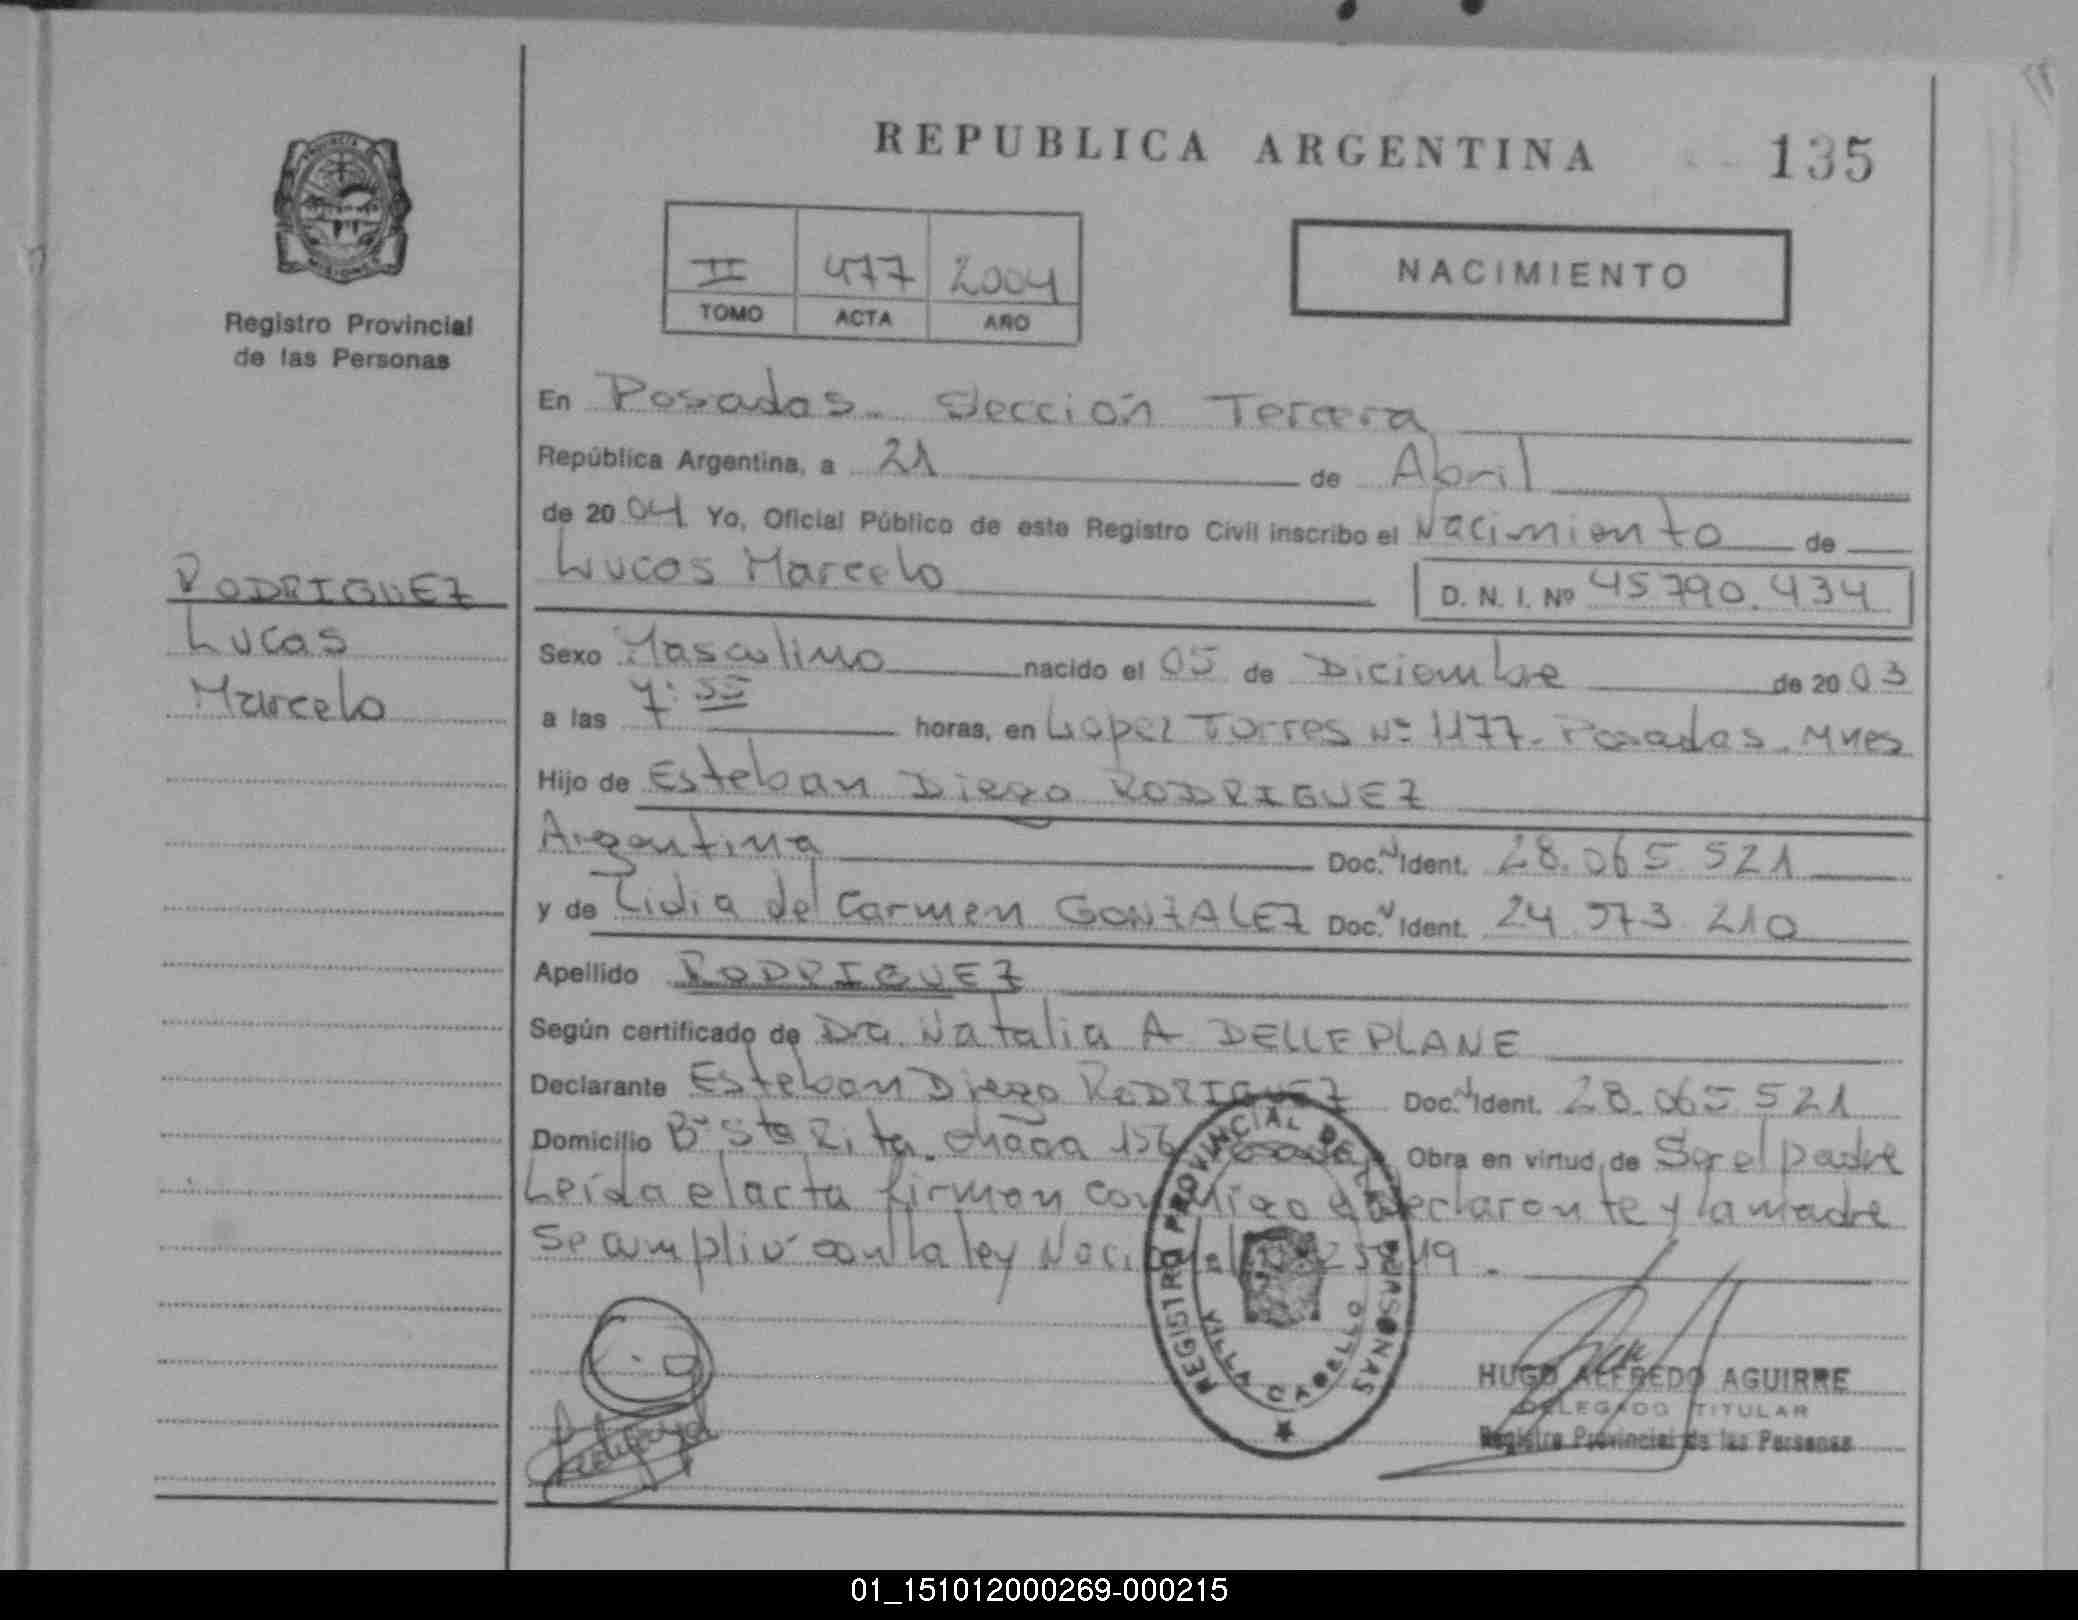 REPUBLICA ARGENTINA 135
PROVINCIA DE MISIONES
Registro Provincial
de las Personas
II 477 2004
TOMO ACTA AÑO
NACIMIENTO
En Posadas. Sección Tercera
República Argentina, a 21 de Abril
de 2004 Yo, Oficial Público de este Registro Civil inscribo el Nacimiento de
Lucas Marcelo D. N. I. Nº 45790.434
RODRIGUEZ
Lucas
Marcelo
Sexo Masculino nacido el 05 de Diciembre de 2003
a las 7:55 horas, en Lopez Torres Nº 1177. Posadas. Mnes
Hijo de Esteban Diego RODRIGUEZ
Argentina Doc. Ident. 28.065.521
y de Lidia del Carmen GONZALEZ Doc. Ident. 24 973 210
Apellido RODRIGUEZ
Según certificado de Dra Natalia A DELLEPLANE
Declarante Esteban Diego RODRIGUEZ Doc. Ident. 28.065 521
Domicilio Bº Sta Rita. 156 Obra en virtud de Ser el padre
Leida el acta firman conmigo el declarante y la madre
Se cumplió con la ley Nacional
REGISTRO PROVINCIAL DE LAS PERSONAS
VILLA CABELLO
HUGO ALFREDO AGUIRRE
DELEGADO TITULAR
Registro Provincial de las Personas
01_151012000269-000215